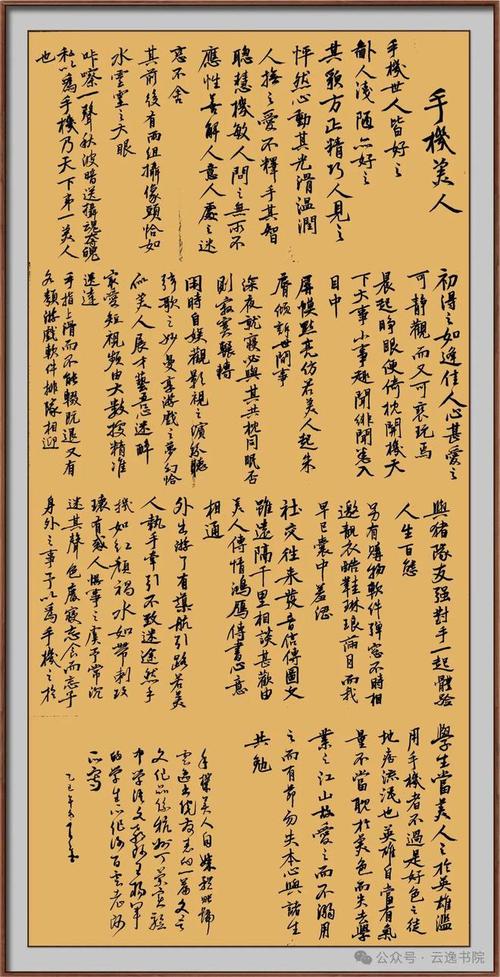 手機美人
手機世人皆好之
鄙人淺陋亦好之
其貌方正精巧人見之
怦然心動其光滑溫潤
人撫之愛不釋手其智
聰慧機敏人問之無所不
應性善解人意人處之迷
戀不舍
其前後有兩組攝像頭恰如
水靈靈之大眼
咔嚓一聲秋波暗送攝魂奪魄
私以為手機乃天下第一美人
也
初得之如逢佳人心甚愛之
可靜觀而又可褻玩焉
晨起睜眼便倚枕開機天
下大事小事趣聞緋聞悉入
目中
屏幕點亮仿若美人起朱
唇傾訴世間事
深夜就寢必與其共枕同眠否
則寂寞輾轉
閑時自娛觀影視之演繹聽
弦歌之妙曼享游戲之夢幻恰
似美人展才藝五忘迷醉
最愛短視頻由大數據精准
送達
手指上滑而不能輟阮退又有
各類游戲軟件排隊相迎
與豬隊友强對手一起體驗
人生百態
另有購物軟件彈窗不時相
邀靚衣酷鞋琳琅滿目而我
早已囊中羞澀
社交往來發音信傳圖文
雖遠隔千里相談甚歡由
美人傳情鴻雁傳書心意
相通
外出游了有導航引路若美
人執手牽引不致迷途然手
機如紅顏禍水如帶刺玫
瑰有惑人悞事之虞予常沉
迷其聲色廢寢忘食而忘乎
身外之事予以為手機之於
學生當美人之於英雄濫
用手機者不過是好色之徒
地痞流氓也英雄自當有氣
量不當耽於美色而失去學
業之江山故愛之而不溺用
之而有節勿失本心與諸生
共勉
手機美人自媒
雲逸書院友
文化品
中學語文教師
的學生
所寫
公众号 · 云逸书院